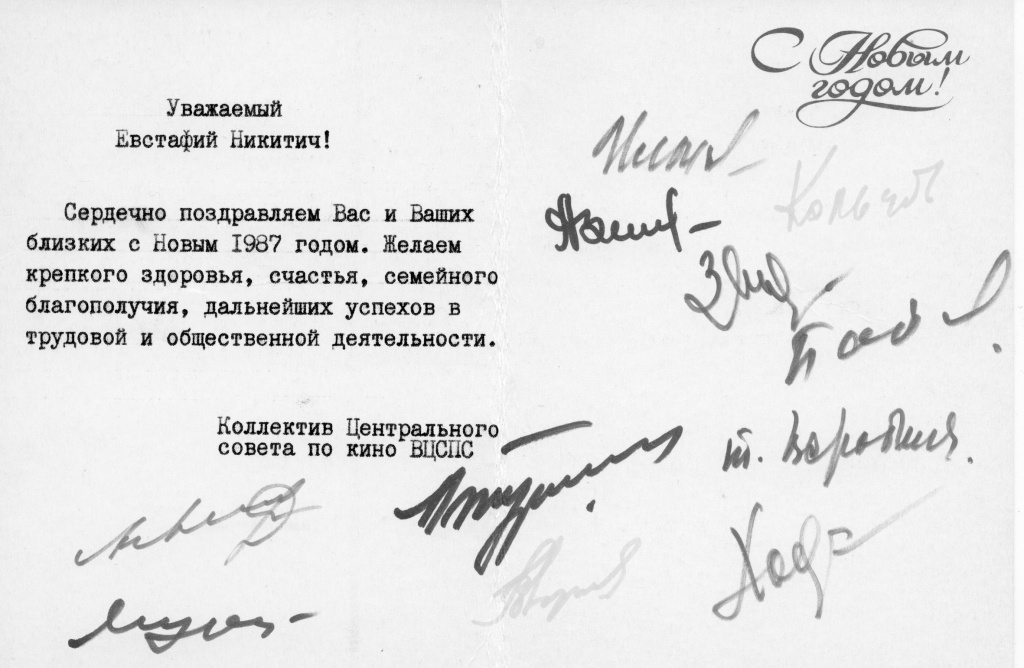 С Новым
годом!
Уважаемый
Евстафий Никитич!
Сердечно поздравляем Вас и Ваших
близких с Новым 1987 годом. Желаем
крепкого здоровья, счастья, семейного
благополучия, дальнейших успехов в
трудовой и общественной деятельности.
Коллектив Центрального
совета по кино ВЦСПС